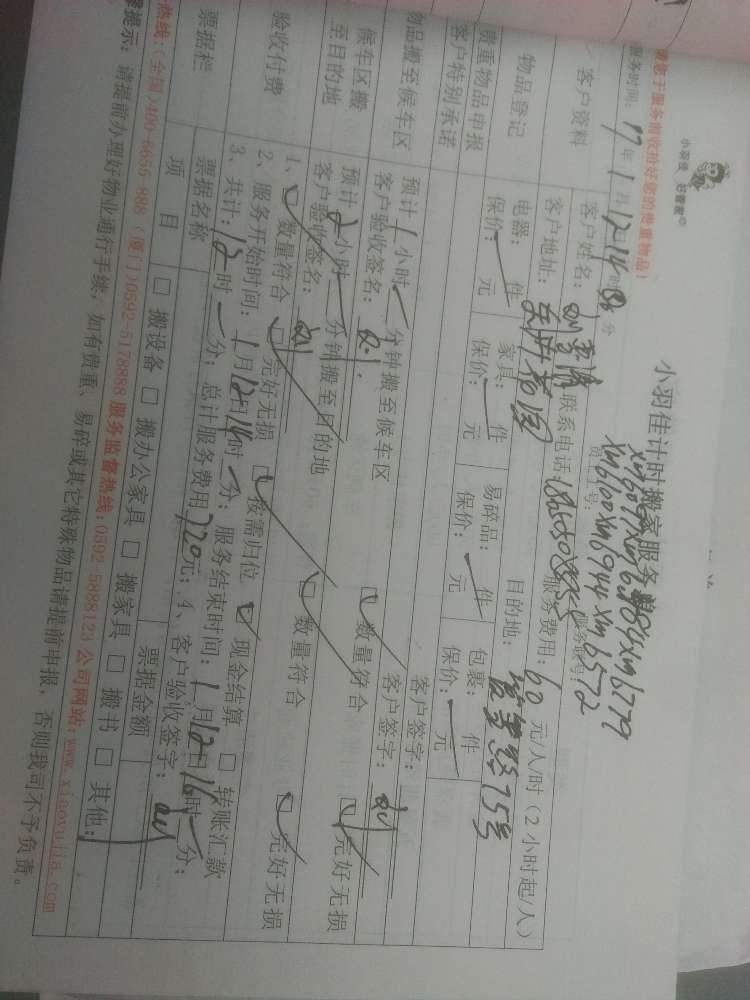 小羽佳 好管家®
小羽佳计时搬家服务
请您于服务前收拾好您的贵重物品！
服务时间：17年1月12日14时 分
客户资料
客户姓名： 联系电话：
服务费用：60元/人/时（2小时起/人）
客户地址： 目的地： 75号
物品登记
电器：一件 家具：一件 易碎品：一件 包裹：一件
保价： 元 保价： 元 保价： 元 保价： 元
贵重物品申报
客户特别承诺
客户签字：
物品搬至候车区
预计1小时一分钟搬至候车区 数量符合 完好无损
客户验收签名： 客户签字：
候车区搬至目的地
预计2小时一分钟搬至目的地
客户验收签名： 数量符合 完好无损
验收付费
1、数量符合 完好无损 按需归位 现金结算 转账汇款
2、服务开始时间：1月12日14时一分；服务结束时间：1月12日16时一分；
3、共计：12时一分；总计服务费用720元；4、客户验收签字：
票据栏
票据名称 票据金额
项目 搬设备 搬办公家具 搬家具 搬书 其他：
热线：(全国)400-6656-888 (厦门)0592-5178888 服务监督热线：0592-5888123 公司网站：www.xiaoyujia.com
提示：请提前办理好物业通行手续，如有贵重、易碎或其它特殊物品请提前申报，否则我司不予负责。